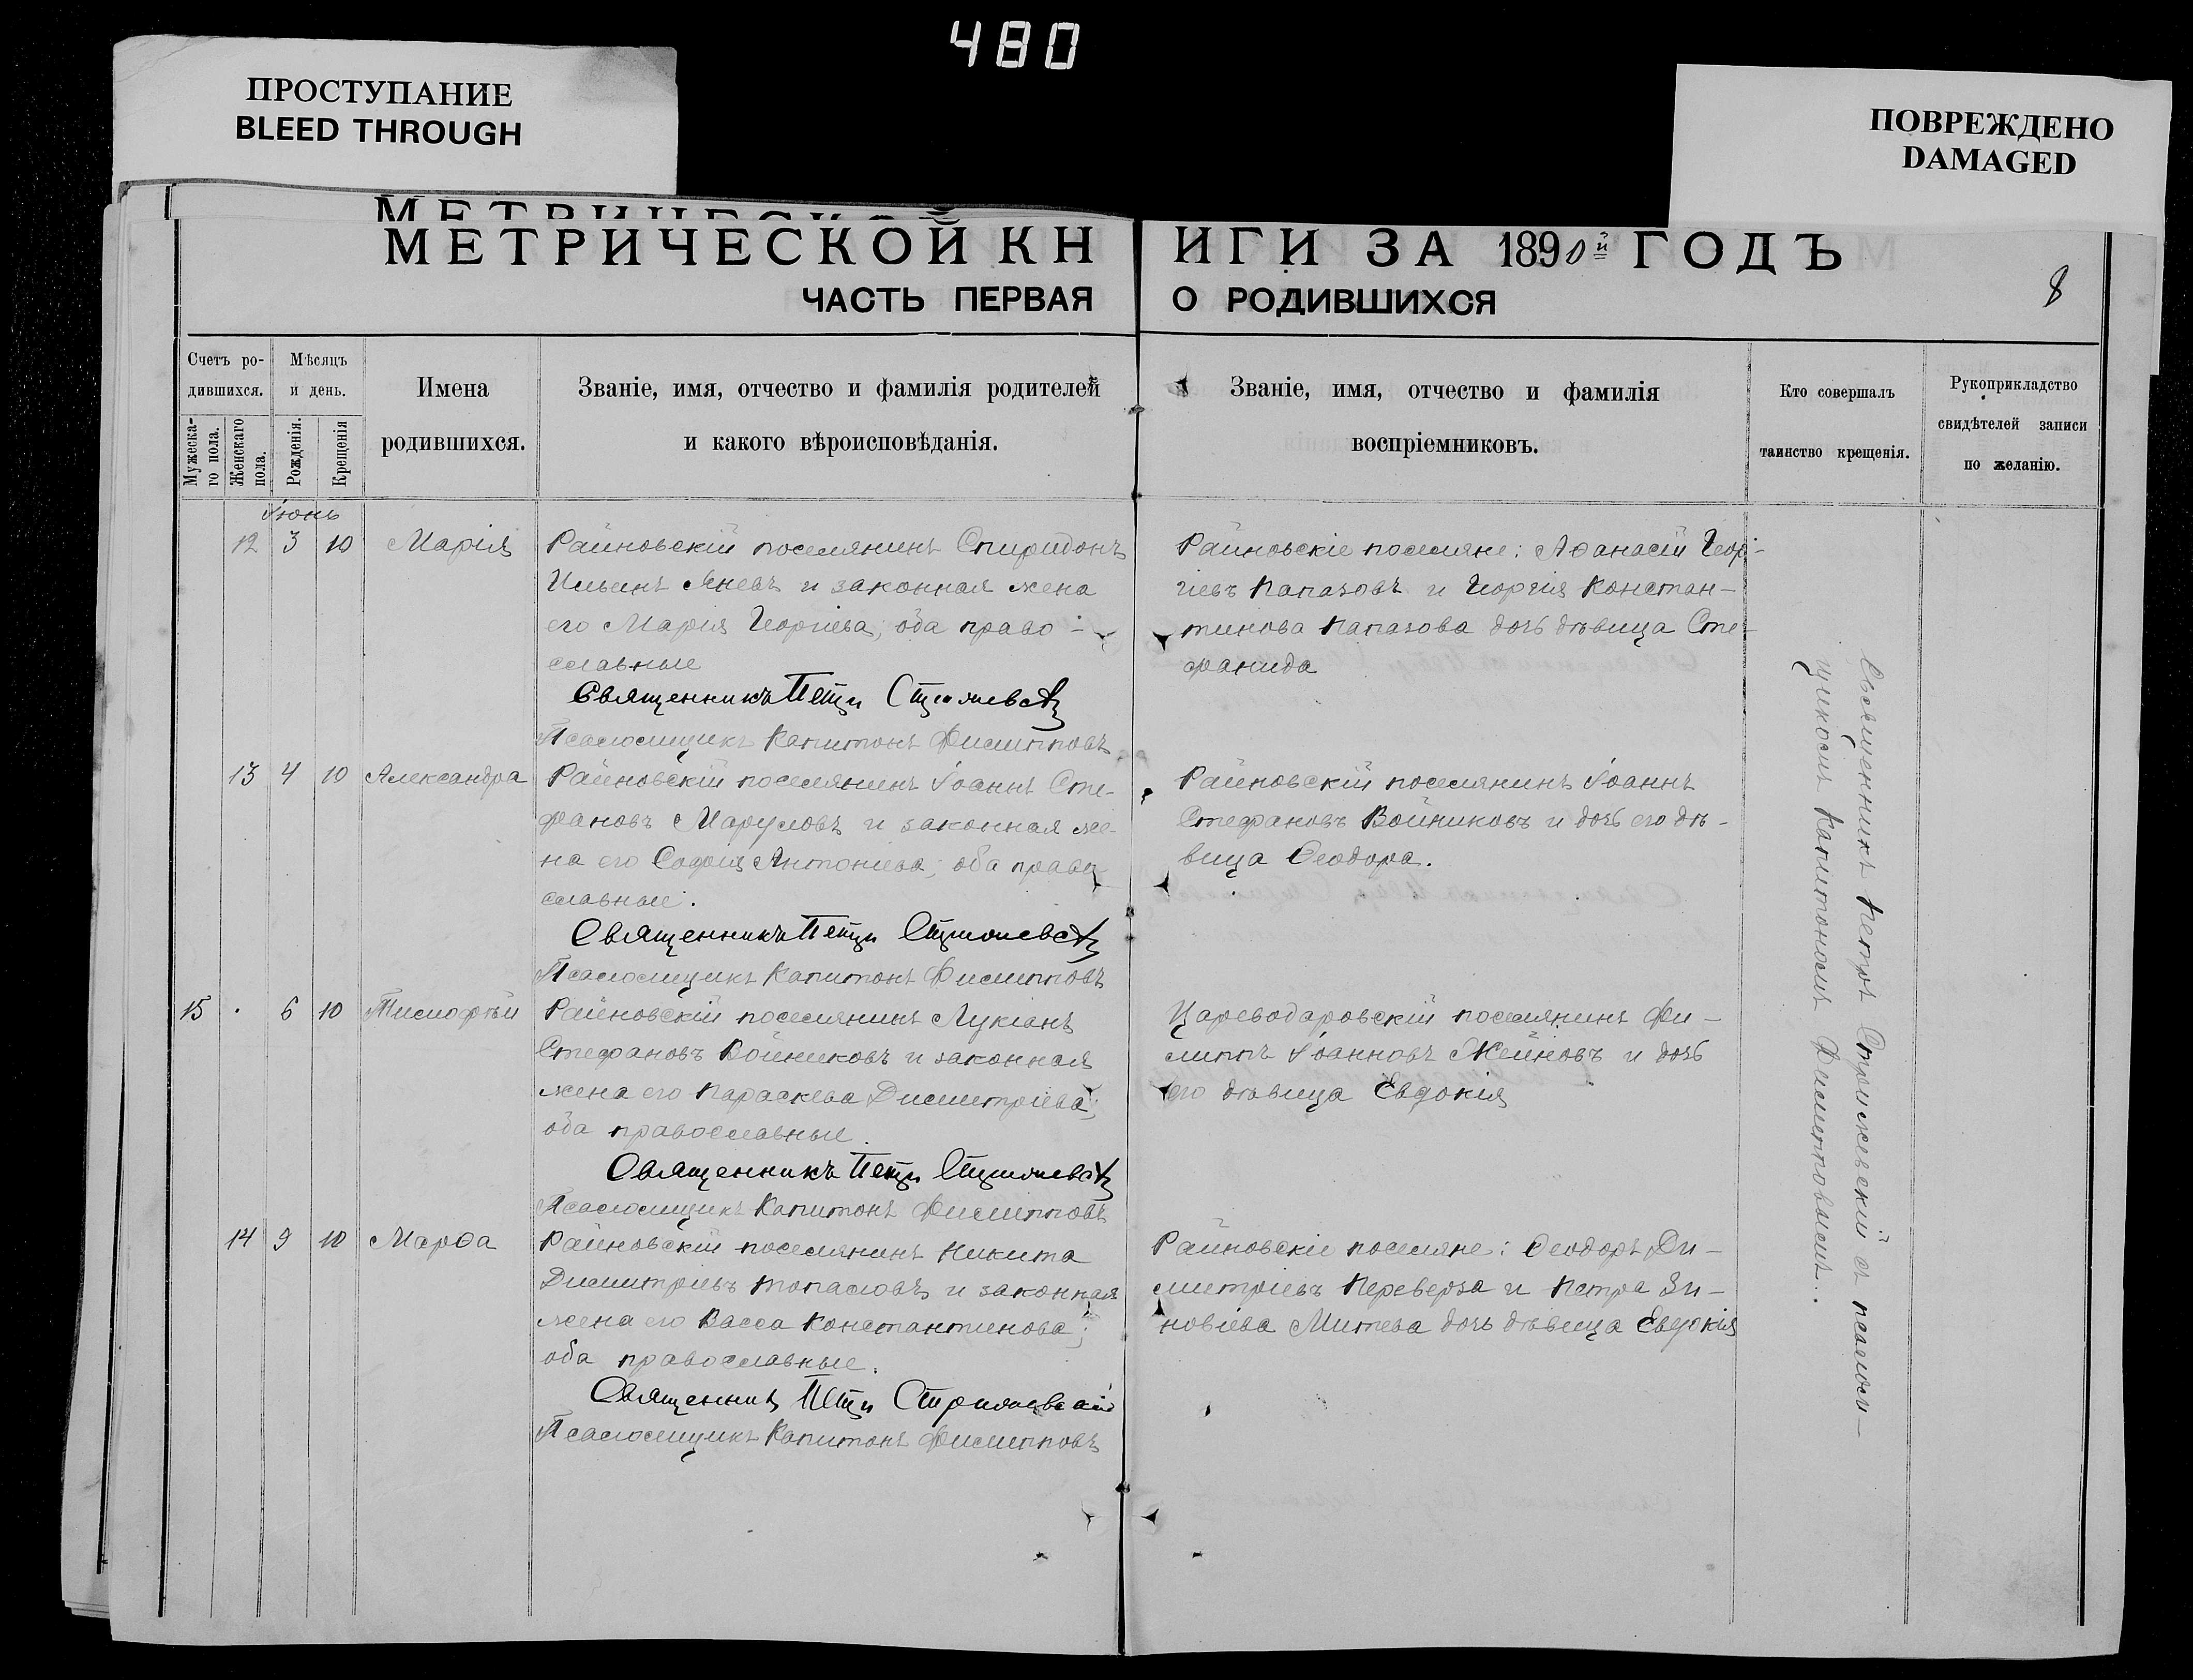 480
ПРОСТУПАНИЕ
BLEED THROUGH
ПОВРЕЖДЕНО
DAMAGED
МЕТРИЧЕСКОЙ КНИГИ ЗА 1890й ГОДЪ
ЧАСТЬ ПЕРВАЯ О РОДИВШИХСЯ
8
Счетъ ро-
дившихся.
Мужеска-
го пола.
Женскаго
пола.
Мѣсяцъ
и день.
Рожденія.
Крещенія
Имена
родившихся.
Званіе, имя, отчество и фамилія родителей
и какого вѣроисповѣданія.
Званіе, имя, отчество и фамилія
воспріемниковъ.
Кто совершалъ
таинство крещенія.
Рукоприкладство
свидѣтелей записи
по желанію.
Іюнь
12 3 10 Марія
Раиновскій поселянинъ Спиридонъ
Ильинъ Яневъ и законная жена
его Марія Георгіева; оба право-
славные
Священникъ Петръ
Псаломщикъ Капитонъ Филипповъ
Раиновскіе поселяне: Аѳанасій Геор-
гіевъ Папазовъ и Георгія Констан-
тинова Папазова дочь дѣвица Сте-
фанида
13 4 10 Александра
Раиновскій поселянинъ Іоаннъ Сте-
фановъ Маруловъ и законная же-
на его Софія Антоніева; оба право
славные.
Священникъ Петръ
Псаломщикъ Капитонъ Филипповъ
Раиновскій поселянинъ Іоаннъ
Стефановъ Войниковъ и дочь его дѣ-
вица Ѳеодора.
15 6 10 Тимофѣй
Раиновскій поселянинъ Лукіанъ
Стефановъ Войниковъ и законная
жена его Параскева Димитріева;
оба православные.
Священникъ Петръ
Псаломщикъ Капитонъ Филипповъ
Цареводаровскій поселянинъ Фи-
липпъ Іоанновъ Жейновъ и дочь
его дѣвица Евдокія
14 9 10 Марѳа
Раиновскій поселянинъ Никита
Димитріевъ Топаловъ и законная
жена его Васса Константинова;
оба православные.
Священникъ Петръ
Псаломщикъ Капитонъ Филипповъ
Раиновскіе поселяне: Ѳеодоръ Ди-
митріевъ Переверза и Петра Зи-
новіева Митева дочь дѣвица Евдокія
Священникъ Петръ съ псалом-
щикомъ Капитономъ Филипповымъ.